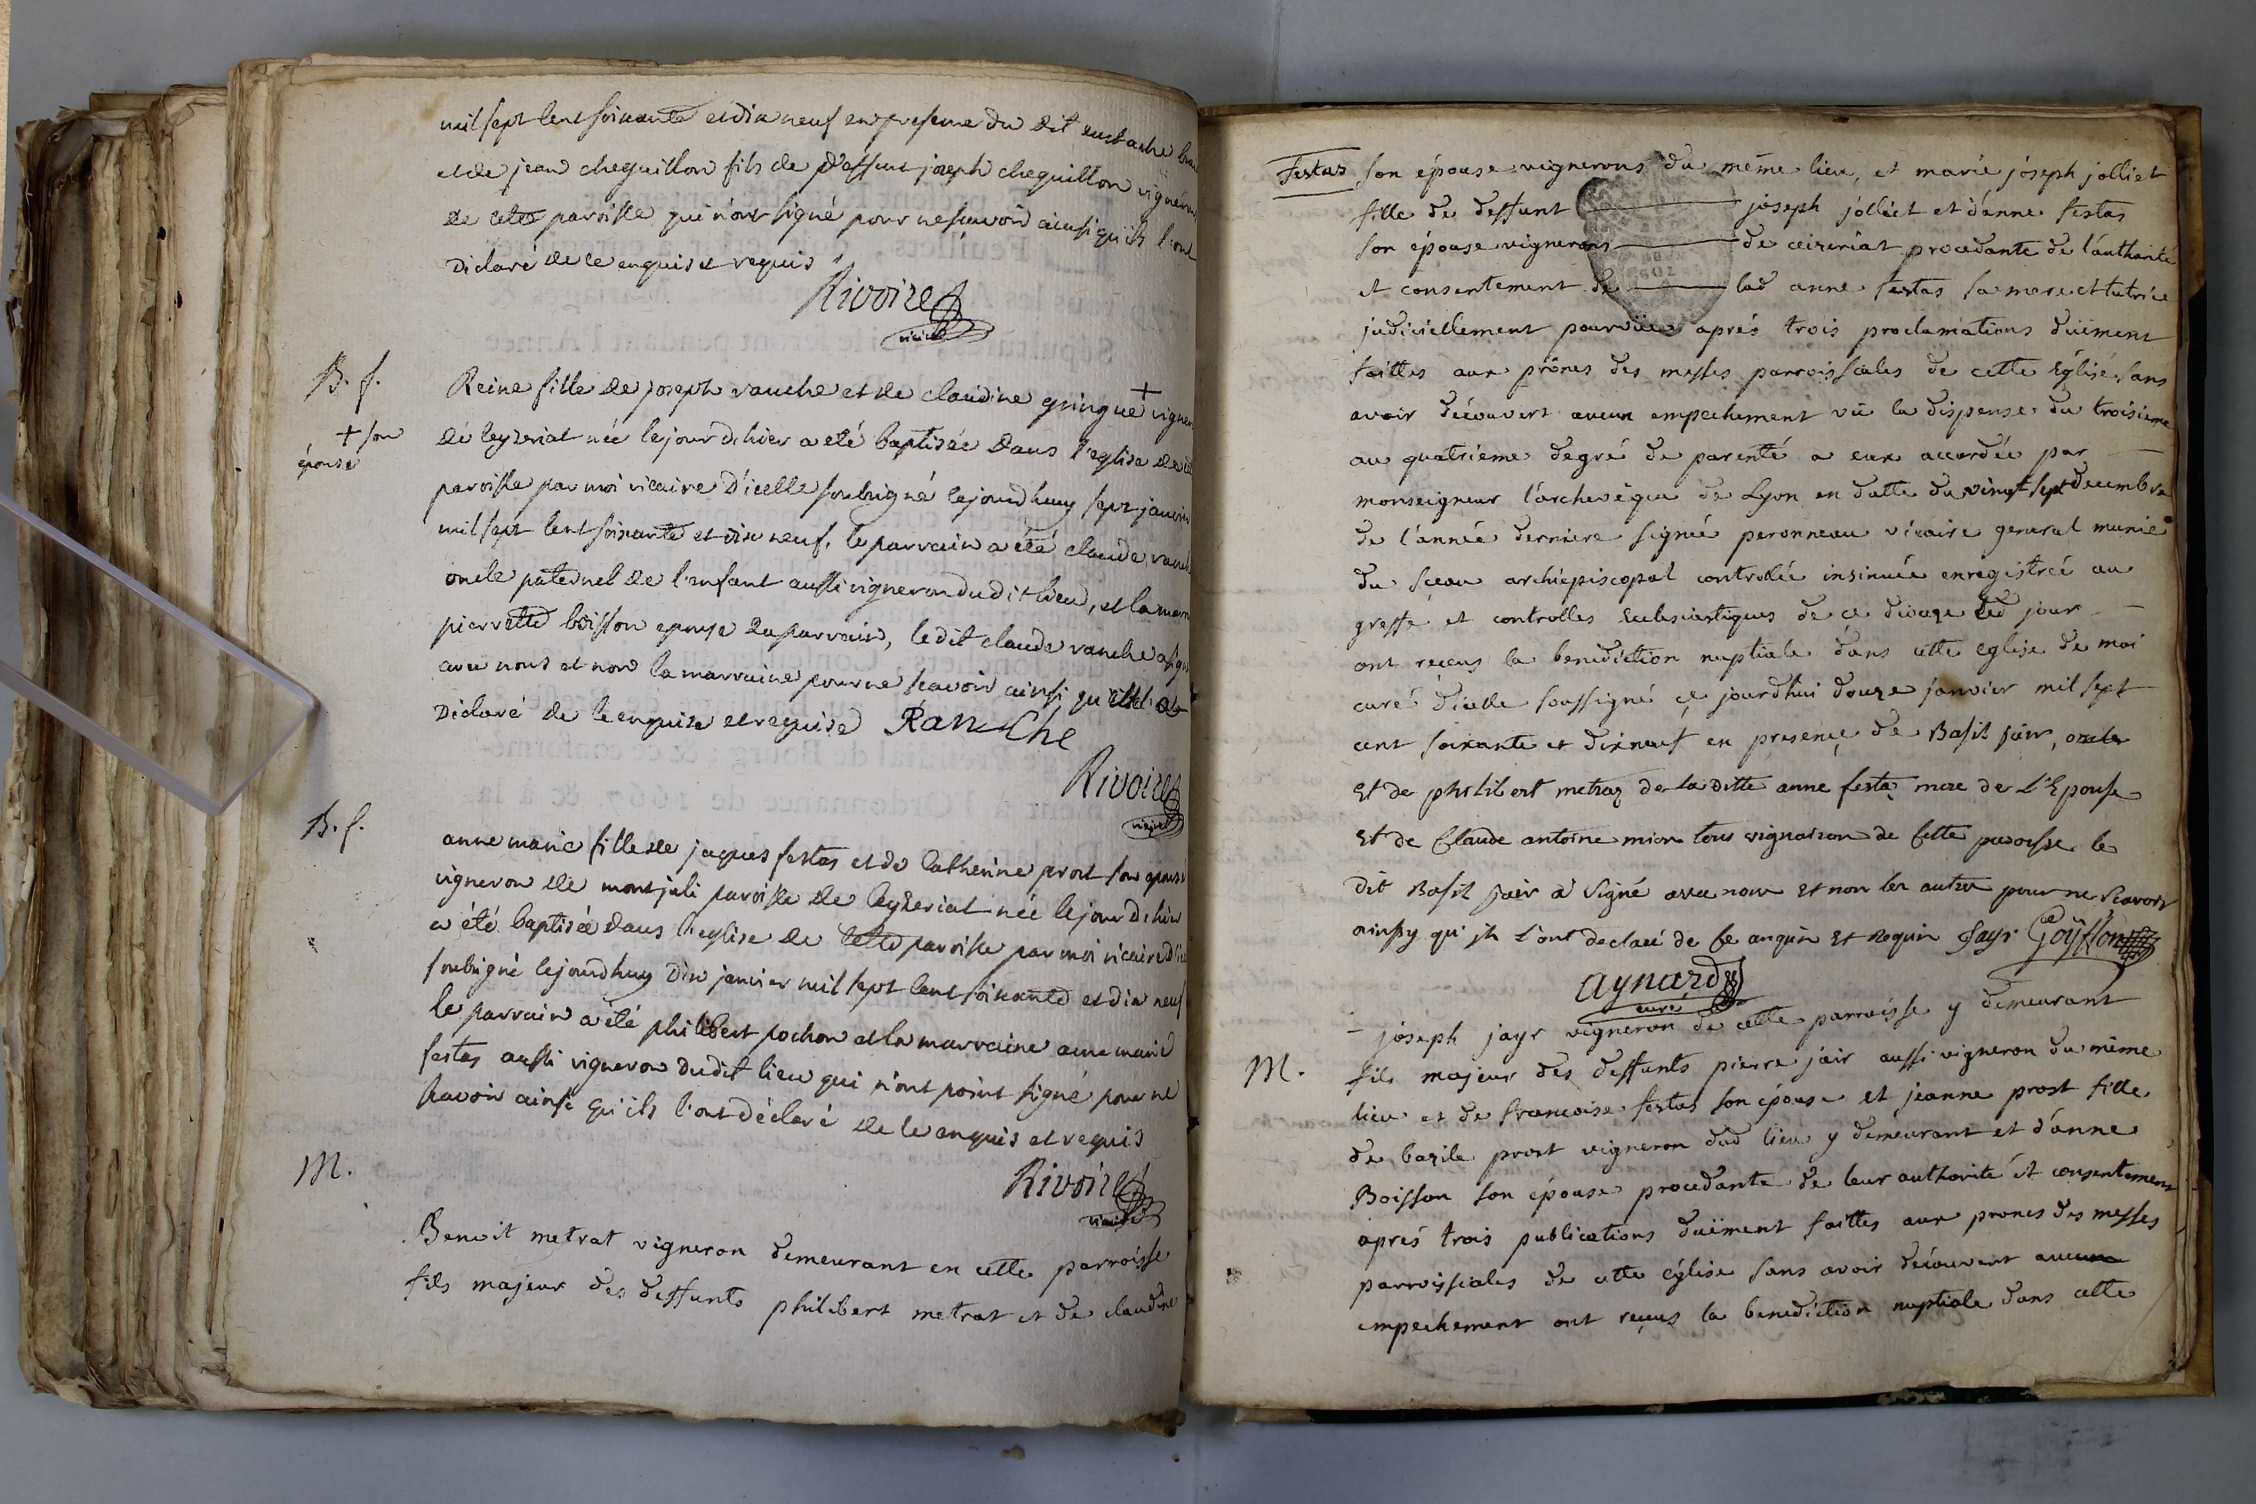 mil sept cent soixante et dix neuf en presence du dit eustache
et de jean cheguillon fils de deffunt joseph cheguillon vigneron
de cette paroisse qui n'ont signé pour ne scavoir ainsi qu'ils l'ont
declaré de ce enquis et requis
Rivoire
vicaire
B. f.
Reine fille de joseph vanche et de claudine gringue + vigner
+ son
épouse
de ceyzeriat née le jour d'hier a eté baptisée dans l'eglise de
paroisse par moi vicaire d'icelle soubsigné ce jourdhuy sept janvier
mil sept cent soixante et dix neuf, le parrain a été claude vanche
oncle paternel de l'enfant aussi vigneron du dit lieu, et la marr
pierrette boisson epouse du parrain, le dit claude vanche a signé
avec nous et non la marraine pour ne scavoir ainsi qu'elle l'a
declaré de ce enquise et requise Ranche
Rivoire
vicaire
B. f.
anne marie fille de jaques festas et de Catherine prost son epouse
vigneron de montjuli paroisse de ceyzeriat née le jour d'hier
a été baptisée dans l'eglise de cette paroisse par moi vicaire d'i
soubsigné ce jourdhuy dix janvier mil sept cent soixante et dix neuf
le parrain a été philibert pochon et la marraine anne marie
festas aussi vigneron dudit lieu qui n'ont point signé pour ne
scavoir ainsi qu'ils l'ont déclaré de ce enquis et requis
Rivoire
vicaire
M.
Benoit metrat vigneron demeurant en cette parroisse
fils majeur des deffunts philibert metrat et de claudine
Festas son épouse vignerons du même lieu, et marie joseph jolliet
fille de deffunt joseph jolliet et d'anne festas
son épouse vignerons de ceizeriat procedante de l'authorité
et consentement de lad anne festas sa mere et tutrice
judiciellement pourvüe aprés trois proclamations düement
faittes aux prônes des messes parroissiales de cette Eglise, sans
avoir découvert aucun empechement vü la dispense du troisieme
au quatriéme degré de parenté a eux accordée par
monseigneur l'archevêque de Lyon en datte du vingt sept decembre
de l'année derniere signée peronneau vicaire general munie
du sceau archiepiscopal controllée insinuée enregistrée au
greffe et controlles Ecclesiastiques de ce dioceze led jour
ont reçus la benediction nuptiale dans cette eglise de moi
curé d'icelle soussigné ce jourdhui douze janvier mil sept
cent soixante et dixneuf en presence de Basil jair, oncle
Et de philibert metraz de la ditte anne festaz mere de L'Epouse
Et de Claude antoine mion tous vignairon de cette paroisse le
dit Basil jair a signé avec nous et non les autre pour ne scavoir
ainsy qu'jls l'ont declaré de ce anquis et Requis Jayr Goyffon
aynard
curé
joseph jayr vigneron de cette parroisse y demeurant
M.
fils majeur des deffunts pierre jair aussi vigneron du même
lieu et de francoise festas son épouse et jeanne prost fille
de bazile prost vigneron dud lieu y demeurant et d'anne
Boisson son épouse procedante de leur authorité et consentement
aprés trois publications düement faittes aux prones des messes
parroissiales de cette église sans avoir découvert aucun
empechement ont reçus la benediction nuptiale dans cette